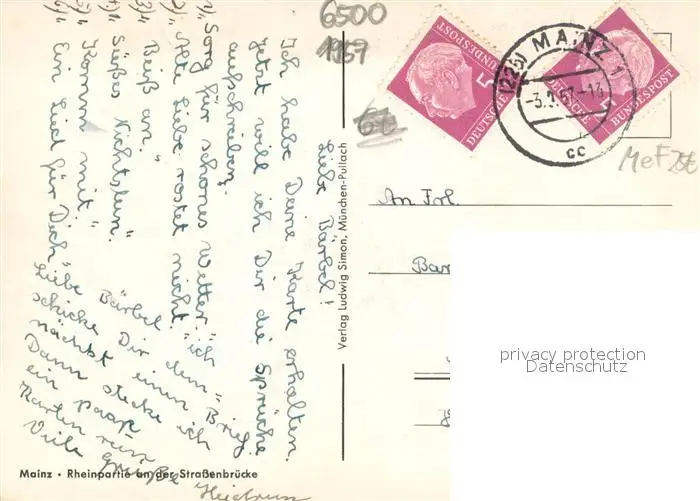 6500
1957
DEUTSCHE BUNDESPOST
5
DEUTSCHE BUNDESPOST
(22b) MAINZ 1
-3.
cc
MeF 25€
An Frl.
Bar
Verlag Ludwig Simon, München-Pullach
Liebe Bärbel!
Ich habe Deine Karte erhalten.
Jetzt will ich Dir die Sprüche
aufschreiben.
1). Sorg für schönes Wetter."
2). Alte Liebe rostet nicht."
3). Beiß an."
4). Süßes Nichtstun."
5). Komm mit."
6). Ein Lied für Dich"
Liebe Bärbel ich
schicke Dir dem=
nächst einen Brief.
Dann stecke ich
ein paar
Karten rein
Viele Grüße
Heidrun
Mainz · Rheinpartie an der Straßenbrücke
privacy protection
Datenschutz